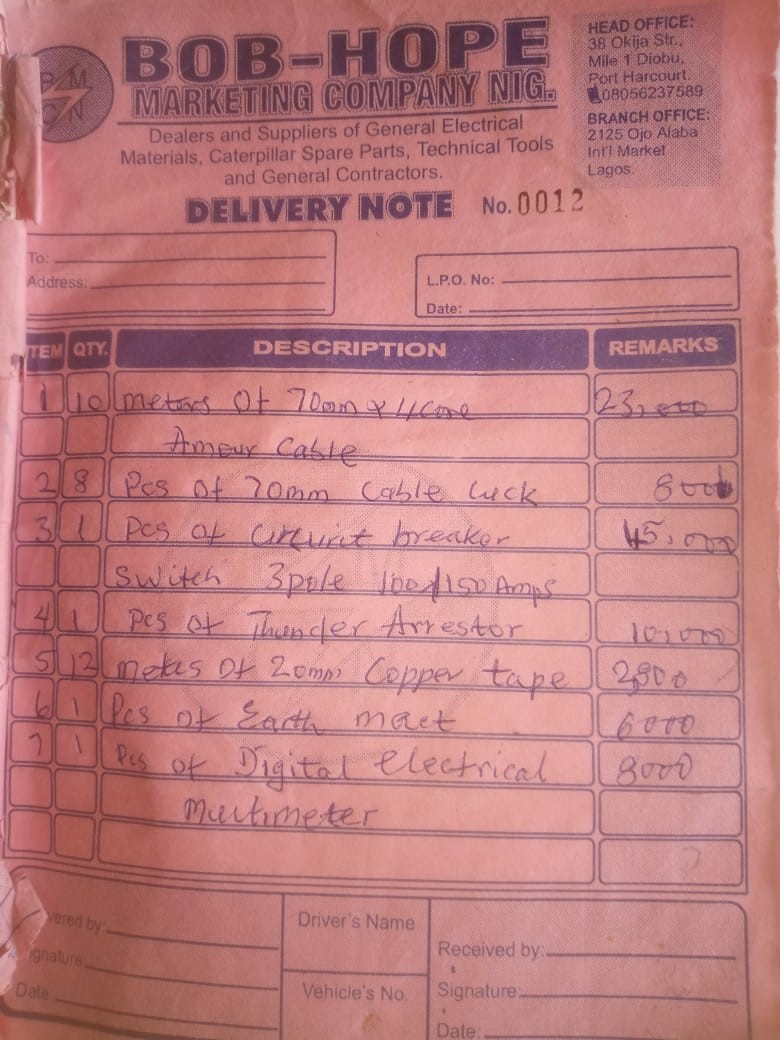 BOB-HOPE
MARKETING COMPANY NIG.
Dealers and Suppliers of General Electrical
Materials, Caterpillar Spare Parts, Technical Tools
and General Contractors.
HEAD OFFICE:
38 Okija Str.,
Mile 1 Diobu,
Port Harcourt.
08056237589
BRANCH OFFICE:
2125 Ojo Alaba
Int'l Market
Lagos.
DELIVERY NOTE No. 0012
To:
Address:
L.P.O. No:
Date:
ITEM QTY. DESCRIPTION REMARKS
1 10 meters Of 70mm x 4 Core 23,000
Amour Cable
2 8 Pcs of 70mm Cable Luck 8000
3 1 Pcs of circuit breaker 45,000
Switch 3pole 100/150 Amps
4 1 Pcs of Thunder Arrestor 10,000
5 12 meters Of 20mm Copper tape
6 1 Pcs of Earth 6000
7 1 Pcs of Digital electrical 8000
multimeter
vered by:
ignature
Date
Driver's Name
Vehicle's No.
Received by:
Signature:
Date: